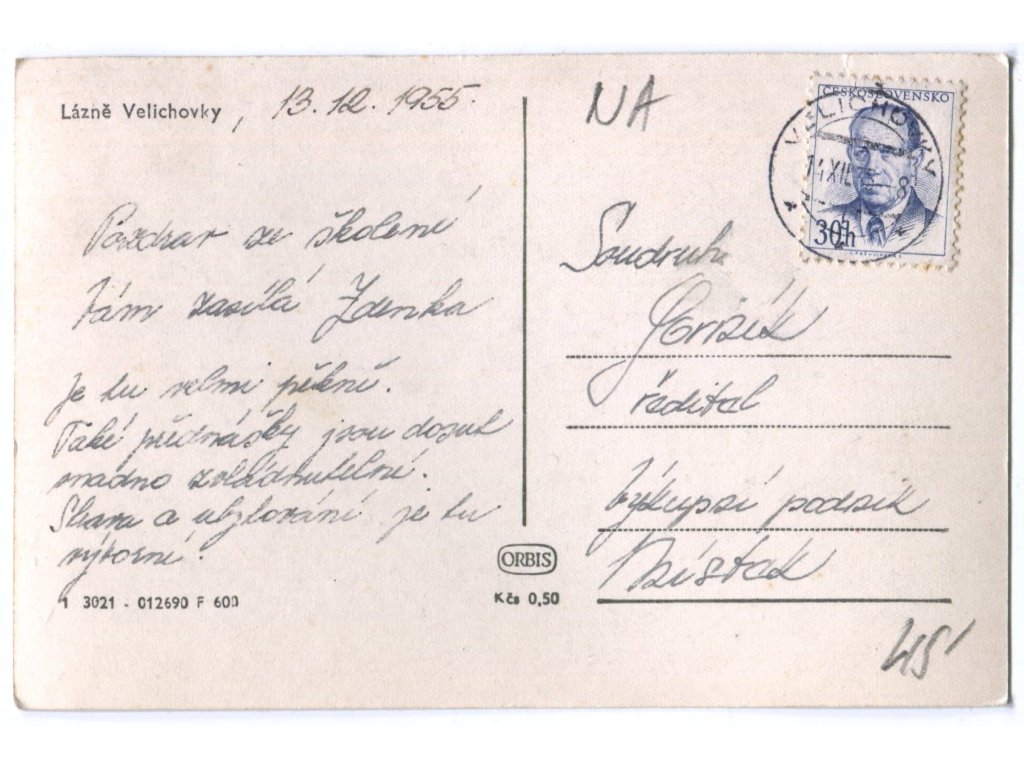 Lázně Velichovky, 13.12.1955.
Pozdrav ze školení
Vám zasílá Zdenka
Je tu velmi pěkně.
Také přednášky jsou dosut
snadno zvládnutelné.
Strava a ubytování je tu
výborné.
1 3021 - 012690 F 600
ORBIS
Kčs 0,50
NA
ČESKOSLOVENSKO
30h
VELICHOVKY
14 XII
8
Soudruh
ředitel
Výkupní podnik
Místek
45'